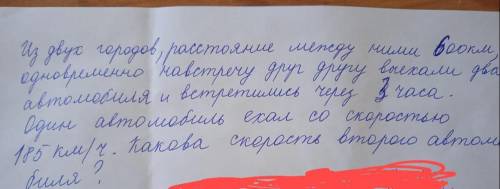 Из двух городов, расстояние между ними 600км
одновременно навстречу друг другу выехали два
автомобиля и встретились через 3 часа.
Один автомобиль ехал со скоростью
185 км/ч. Какова скорость второго автомо
биля?